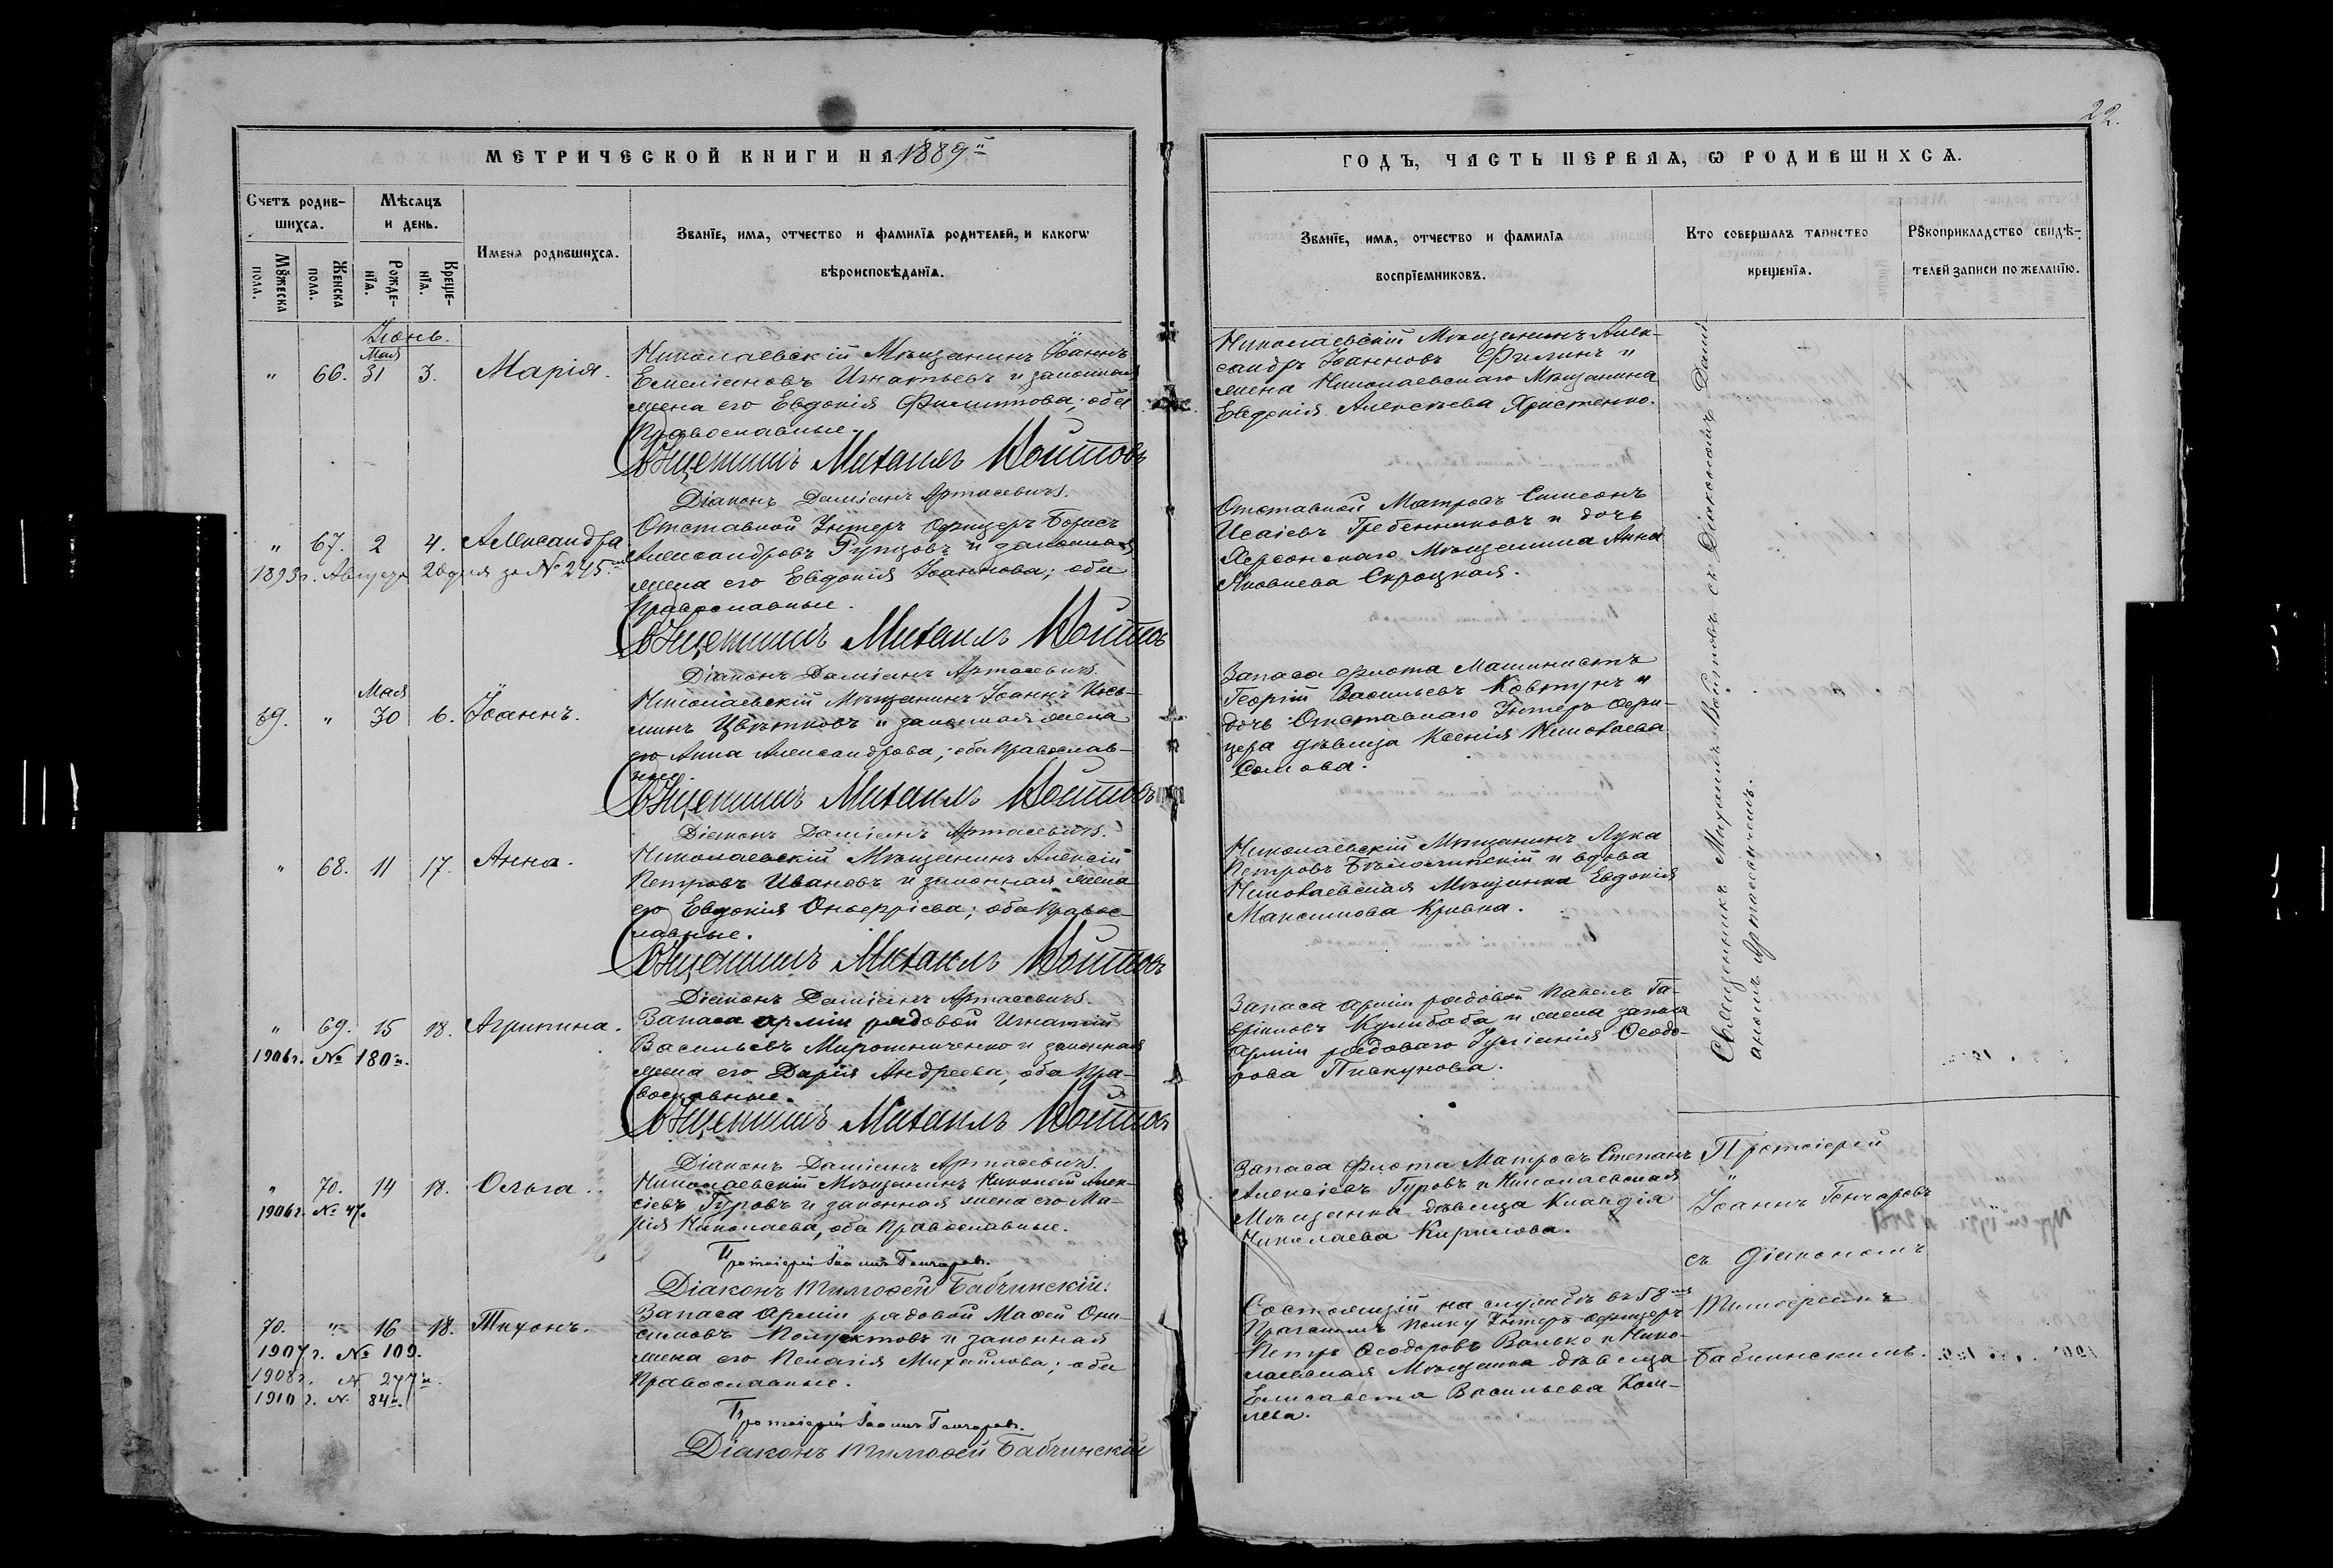 22.
МЕТРИЧЕСКОЙ КНИГИ НА 1889й
ГОДЪ, ЧАСТЬ ПЕРВАЯ, Ѡ РОДИВШИХСЯ.
Счетъ родив-
шихся.
Мѣсяцъ
и день.
Мꙋжеска
пола.
Женска
пола.
Рожде-
нїя.
Креще-
нїя.
Имена родившихся.
Званїе, имя, отчество и фамилїя родителей, и какогѡ
вѣроисповѣданїя.
Званїе, имя, отчество и фамилїя
воспрїемниковъ.
Кто совершалъ таинство
крещенїя.
Рꙋкоприкладство свидѣ-
телей записи по желанїю.
Іюнь.
Мая
" 66. 31 3. Марія.
Николаевскій Мѣщанинъ Іоаннъ
Емеліановъ Игнатьевъ и законная
жена его Евдокія Филиппова; оба
Православные.
Священникъ Михаилъ Войтовъ
Діаконъ Даміанъ Артасевичъ.
Николаевскій Мѣщанинъ Алек-
сандръ Іоанновъ Филинъ и
жена Николаевскаго Мѣщанина
Евдокія Алексѣева Христенко.
" 67. 2 4. Александра
1893 г. Августа 20 дня за № 245.
Отставной Унтеръ Офицеръ Борисъ
Александровъ Рутцовъ и законная
жена его Евдокія Іоаннова; оба
Православные.
Священникъ Михаилъ Войтовъ
Діаконъ Даміанъ Артасевичъ.
Отставной Матросъ Симеонъ
Исаіевъ Гребенниковъ и дочь
Херсонскаго Мѣщанина Анна
Яковлева Скроцкая.
Мая
69. " 30 6. Іоаннъ.
Николаевскій Мѣщанинъ Іоаннъ Кось-
минъ Цвѣтковъ и законная жена
его Анна Александрова; оба Православ-
ные.
Священникъ Михаилъ Войтовъ
Діаконъ Даміанъ Артасевичъ.
Запаса флота Машинистъ
Георгій Васильевъ Ковтунъ и
дочь Отставнаго Унтеръ Офи-
цера дѣвица Ксенія Николаева
Сомова.
" 68. 11 17. Анна.
Николаевскій Мѣщанинъ Алексій
Петровъ Ивановъ и законная жена
его Евдокія Онуфріева; оба Правос-
лавные.
Священникъ Михаилъ Войтовъ
Діаконъ Даміанъ Артасевичъ.
Николаевскій Мѣщанинъ Лука
Петровъ и вдова
Николаевская Мѣщанка Евдокія
Максимова Кривка.
" 69. 15 18. Агрипина.
1906 г. № 180й.
Запаса арміи рядовой Игнатій
Васильевъ Мирошниченко и законная
жена его Дарія Андреева, оба Пра-
вославные.
Священникъ Михаилъ Войтовъ
Діаконъ Даміанъ Артасевичъ.
Запаса арміи рядовой Павелъ Га-
вріиловъ Кулибаба и жена запаса
арміи рядоваго Іуліанія Ѳеодо-
рова Пискунова.
Священникъ Михаилъ Войтовъ съ Діакономъ Даміа-
аномъ Артасевичемъ.
" 70. 14 18. Ольга.
1906 г. № 47.
Николаевскій Мѣщанинъ Николай Алек-
сіевъ Гуровъ и законная жена его Ма-
рія Николаева, оба Православные.
Протоіерей Іоаннъ Гончаровъ.
Діаконъ Тимофей Бабчинскій.
Запаса флота Матросъ Степанъ
Алексіевъ Гуровъ и Николаевская
Мѣщанка дѣвица Клавдія
Николаева Кирилова.
Протоіерей
Іоаннъ Гончаровъ
съ діакономъ
Тимоѳеемъ
Бабчинскимъ.
70. " 16 18. Тихонъ.
1907 г. № 109.
1908 г. № 277й.
1910 г. № 84й.
Запаса арміи рядовой Маѳей Они-
симовъ Полуектовъ и законная
жена его Пелагія Михайлова; оба
Православные.
Протоіерей Іоаннъ Гончаровъ.
Діаконъ Тимофей Бабчинскій
Состоящій на службѣ въ 58мъ
Прагскомъ полку Унтеръ офицеръ
Петръ Ѳеодоровъ Валько и Нико-
лаевская Мѣщанка дѣвица
Елисавета Васильева Ком-
лева.